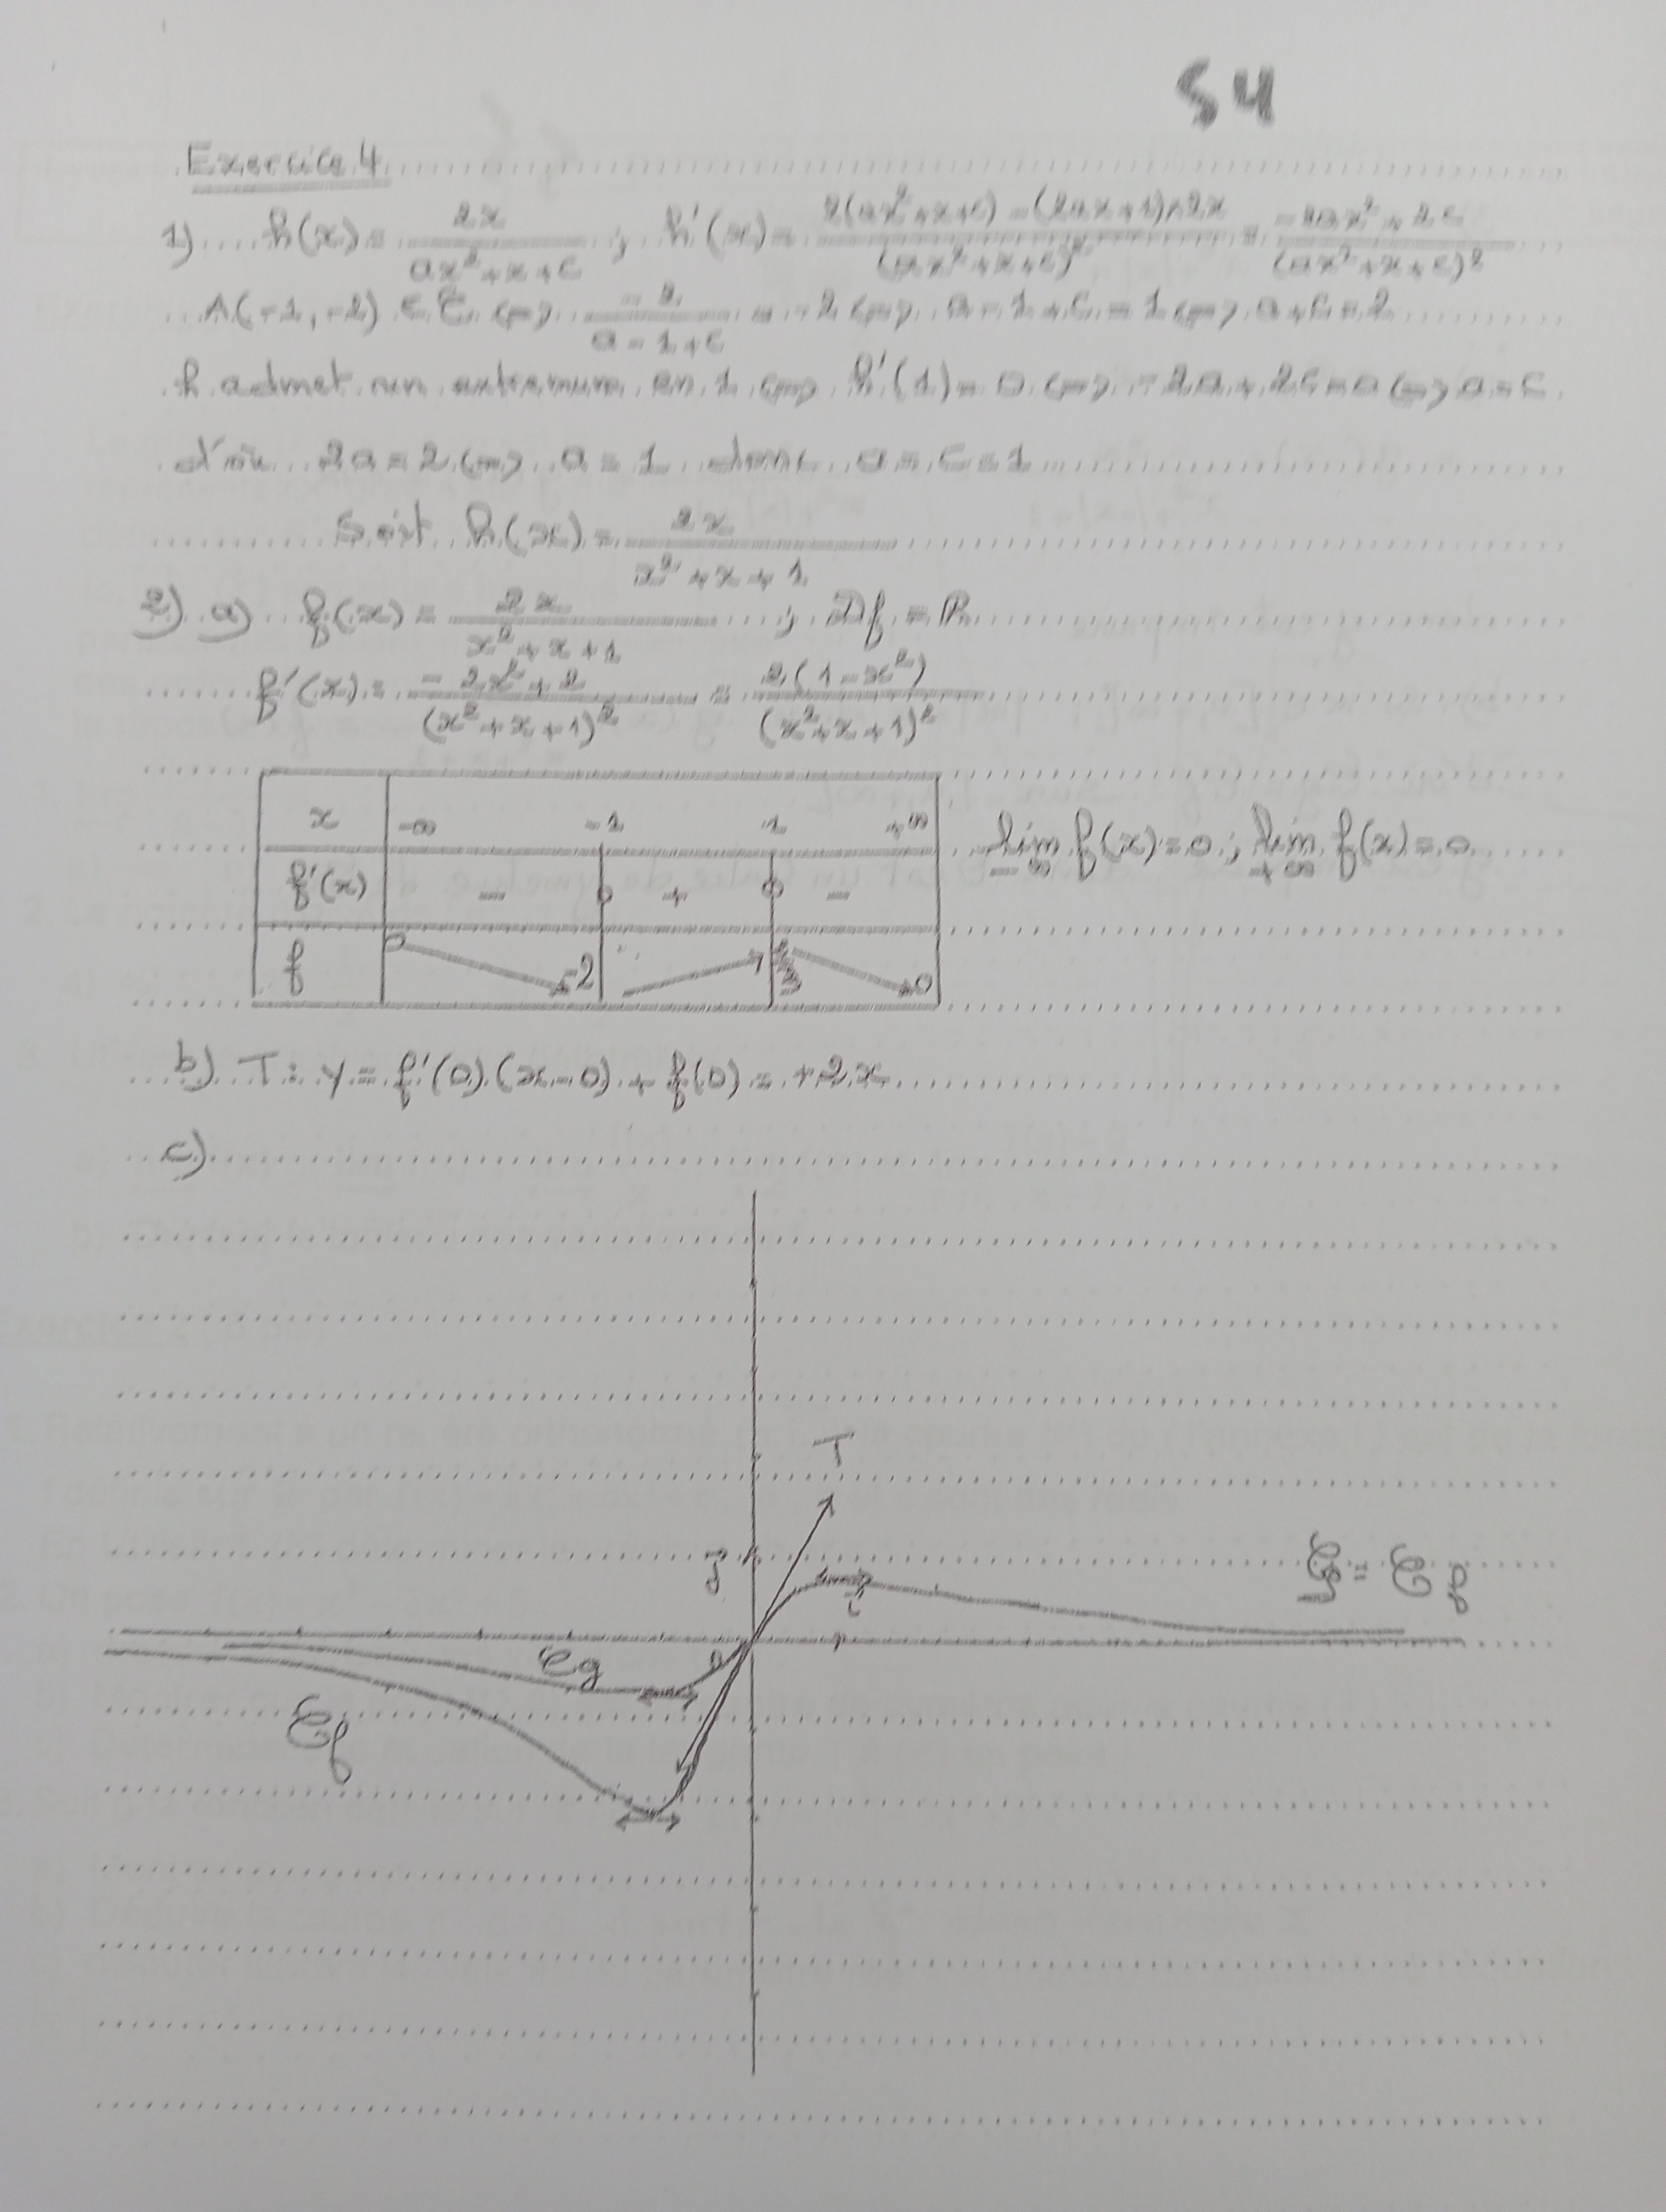 S4
Exercice 4
1) h(x) = 2x / (ax²+x+c) ; h'(x) = (2(ax²+x+c) - (2ax+1)×2x) / (ax²+x+c)² = (-2ax²+2c) / (ax²+x+c)²
A(-1,-2) ∈ C <=> -2 / (a-1+c) = -2 <=> a-1+c = 1 <=> a+c = 2
h admet un extremum en 1 <=> h'(1) = 0 <=> -2a+2c = 0 <=> a = c
d'où 2a = 2 <=> a = 1 donc a = c = 1
Soit h(x) = 2x / (x²+x+1)
2) a) f(x) = 2x / (x²+x+1) ; Df = R
f'(x) = (-2x²+2) / (x²+x+1)² = 2(1-x²) / (x²+x+1)²
x -∞ -1 1 +∞
lim -∞ f(x) = 0 ; lim +∞ f(x) = 0
f'(x) - 0 + 0 -
f 0 -2 2/3 0
b) T : y = f'(0)(x-0) + f(0) = +2x
c)
T
j
Cg = Cf
i
Cg
0
Cf